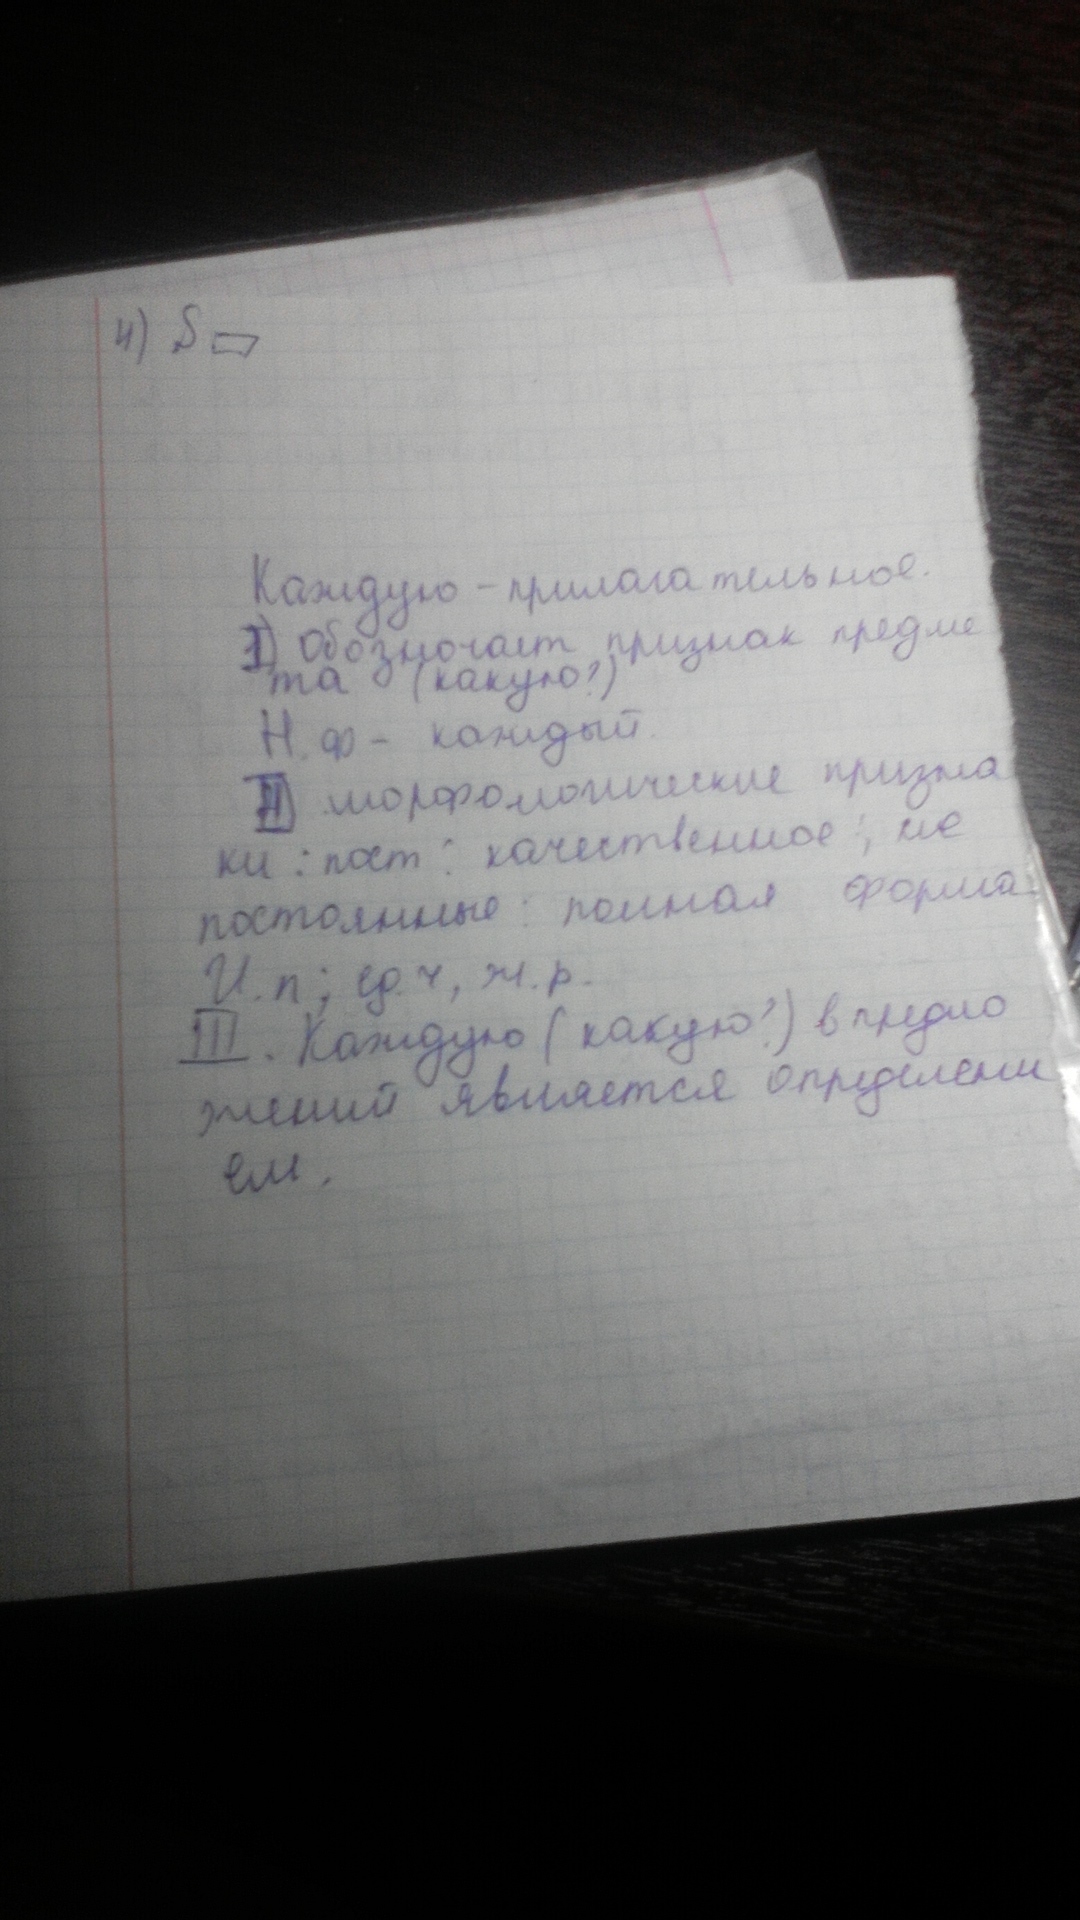 4) S ▱
Каждую - прилагательное.
I) Обозночает признак предме
та (какую?)
Н. ф - каждый.
II) морфологические призна
ки : пост : качественное ; не
постоянные : полная форма
И. п ; ед. ч, ж. р.
III . Каждую ( какую?) в предло
жений является определени
ем .